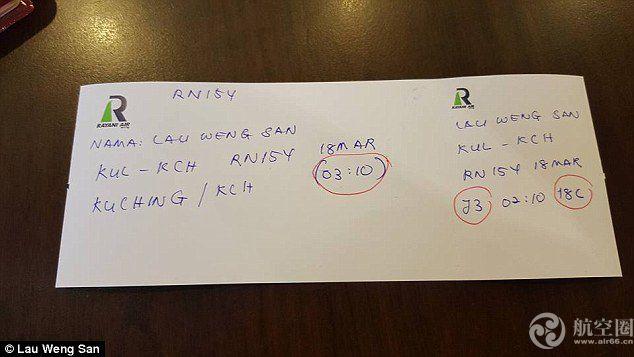 RN15Y
RAYANI AIR
NAMA: LAU WENG SAN
18MAR
KUL - KCH RN15Y
(03:10)
KUCHING / KCH
RAYANI AIR
LAU WENG SAN
KUL - KCH
RN15Y 18MAR
J3 02:10 18C
© Lau Weng San
航空圈
www.air66.cn